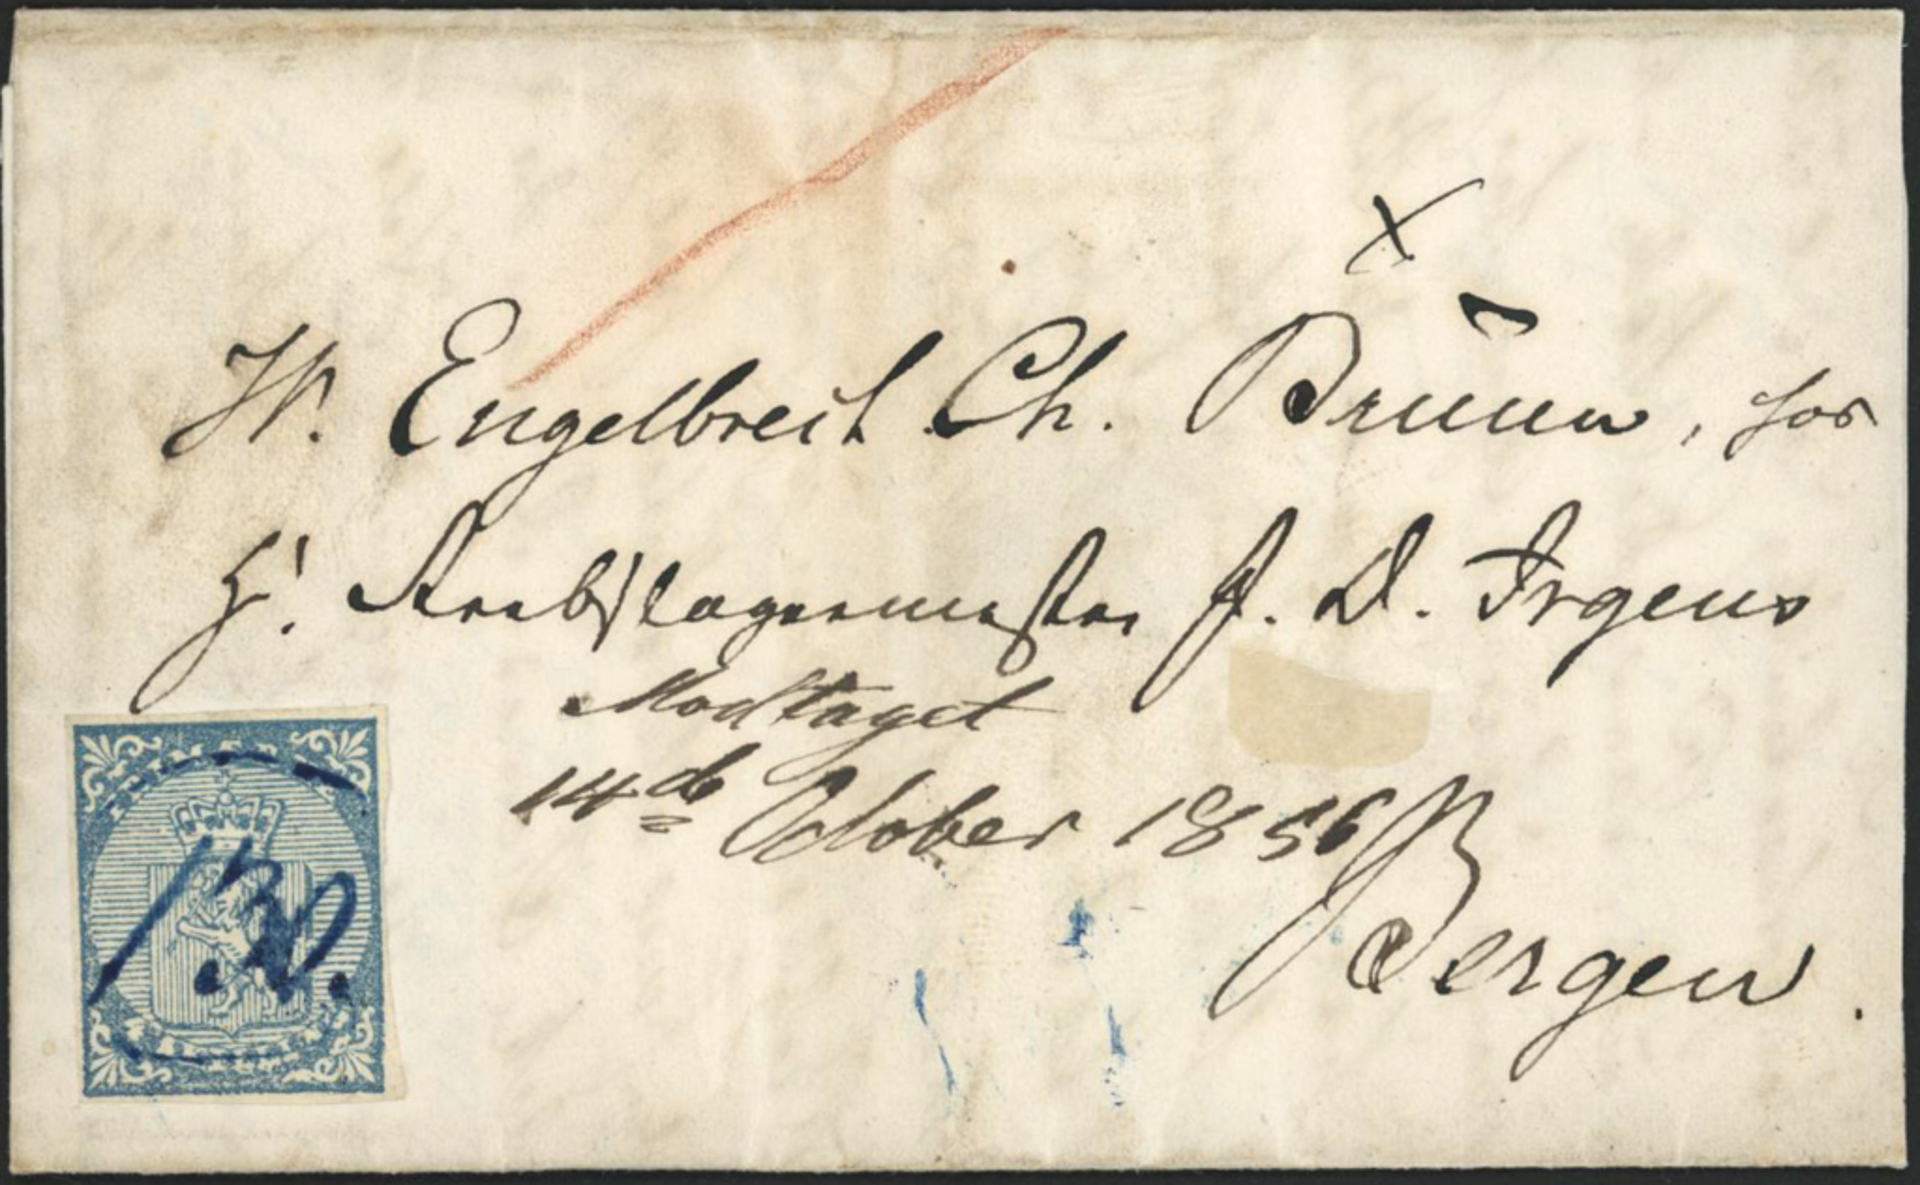 Hr. Engelbreit Ch. Bruun, hos
Hr. Rebslagermester J. D. Irgens
Modtaget
14de October 1856
Bergen.